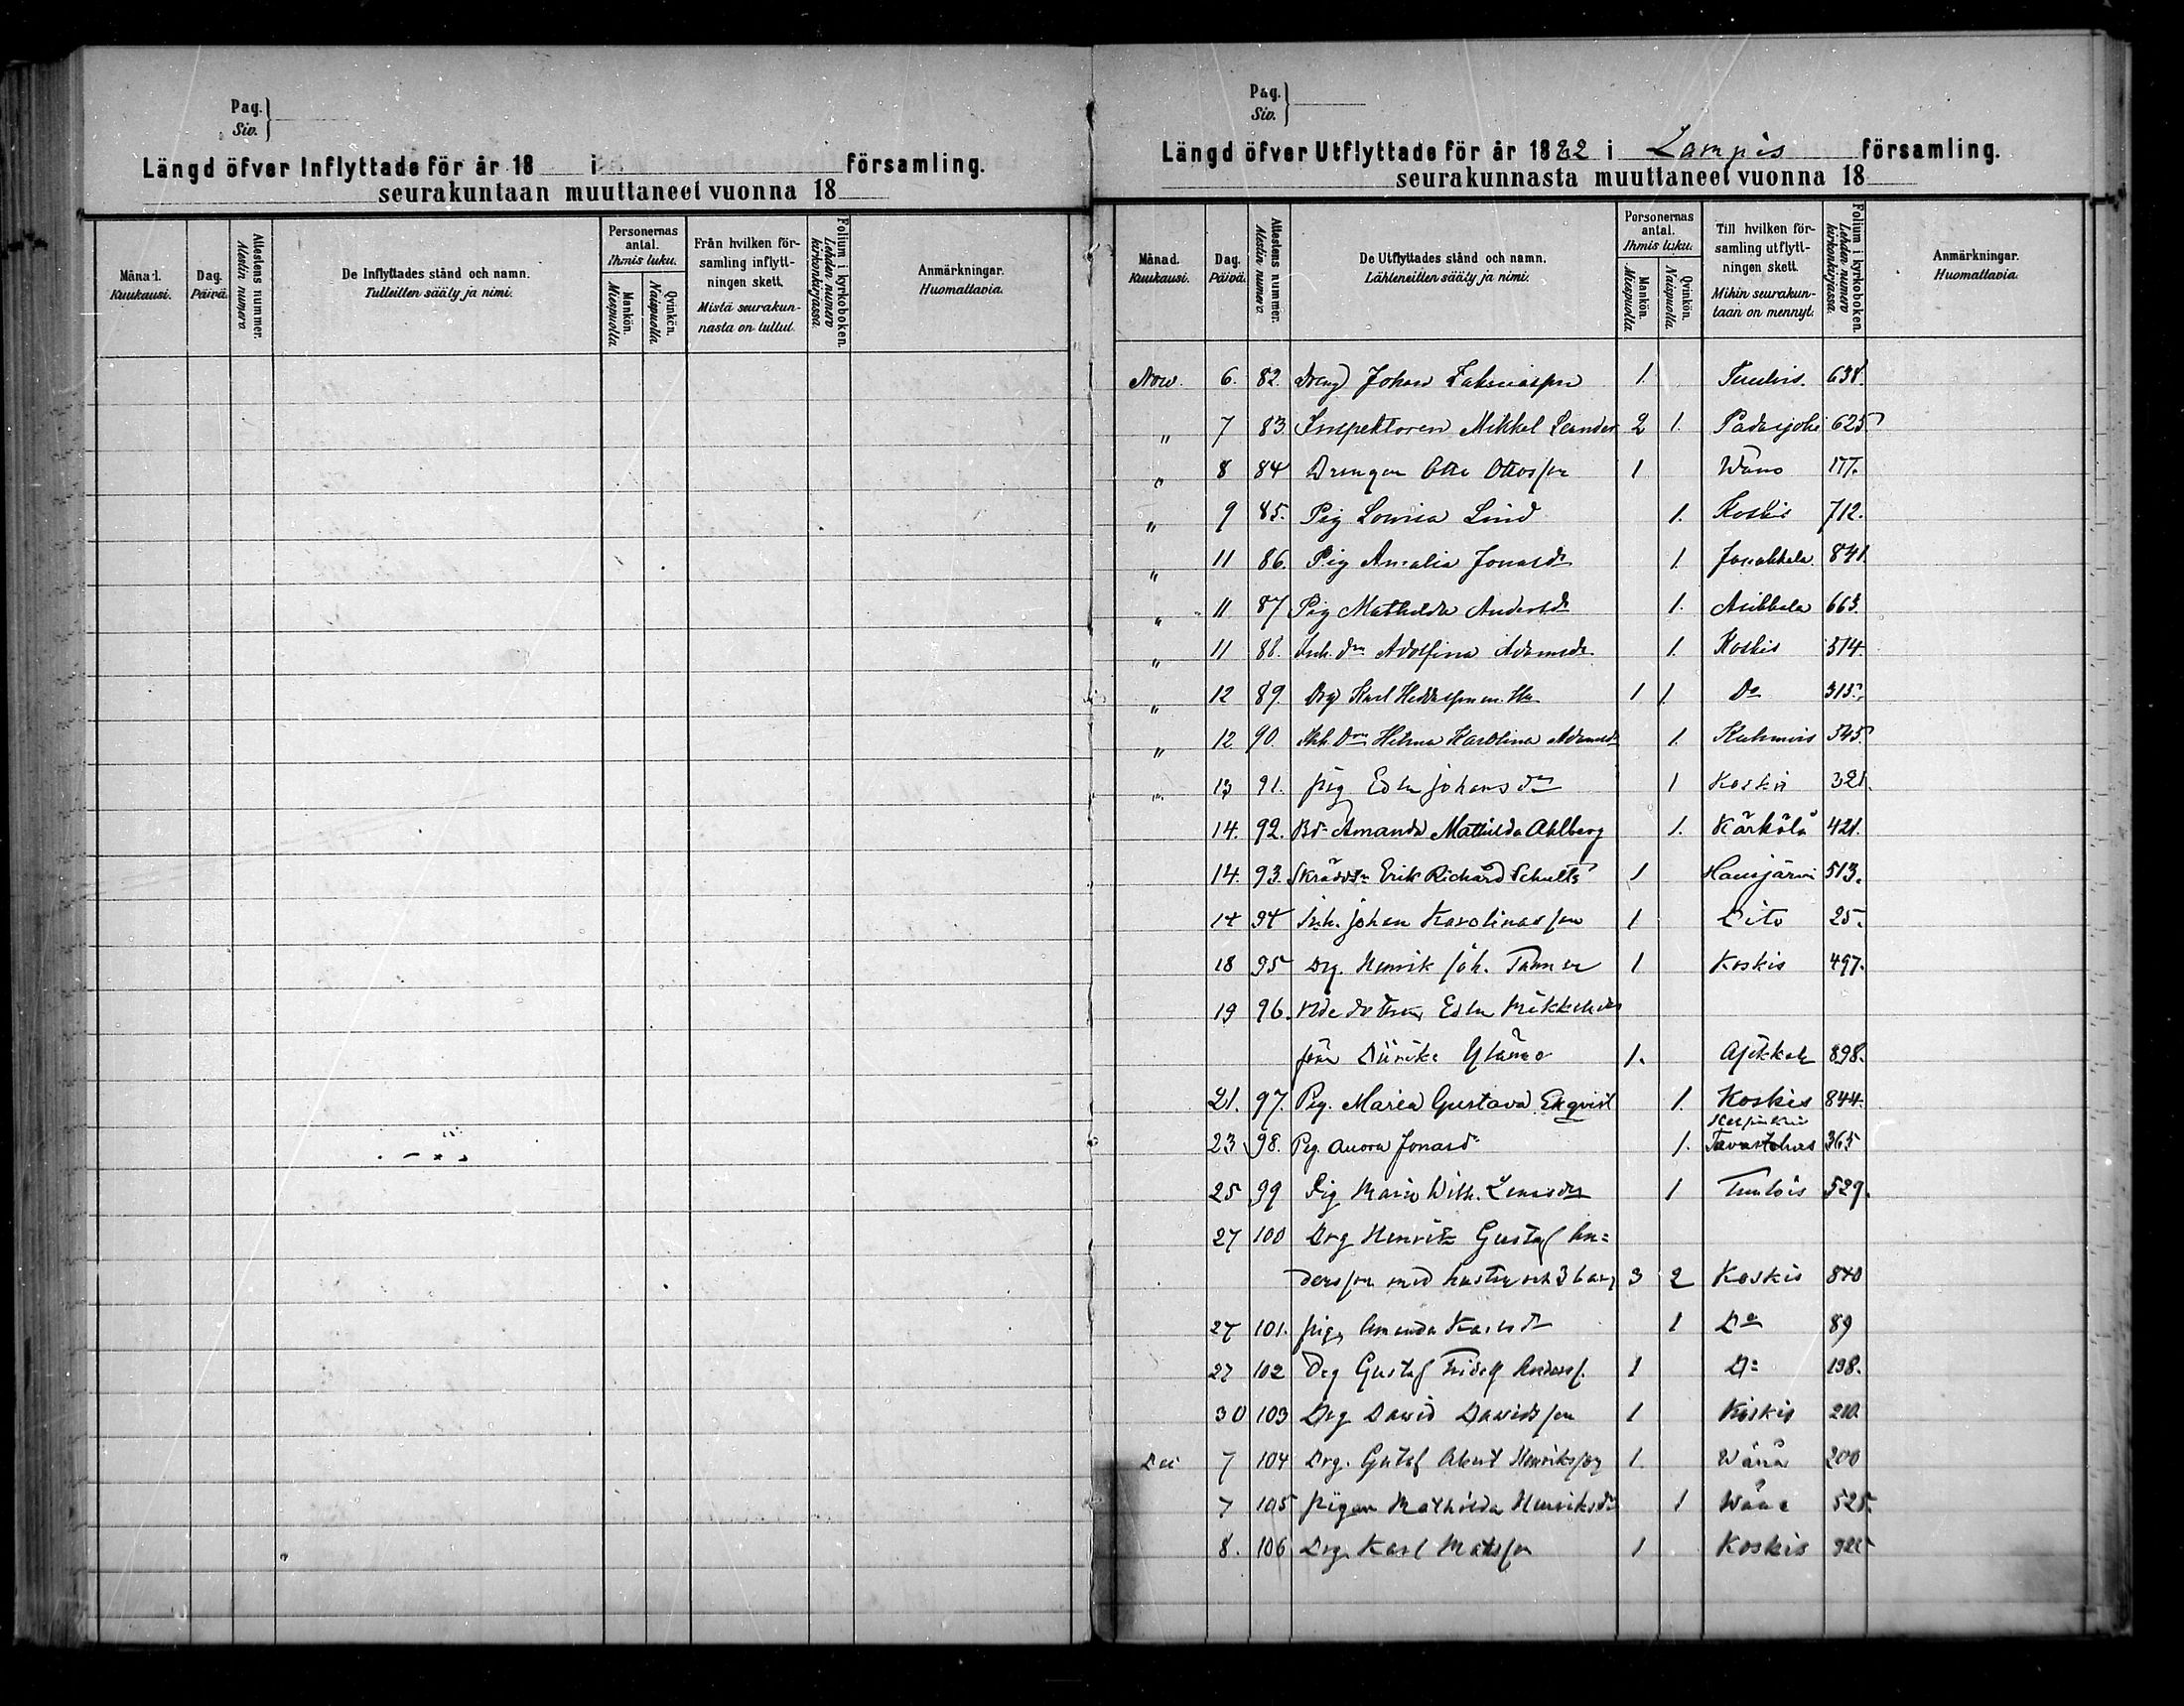 Pag.
Siv.
Längd öfver Inflyttade för år 18 i församling.
seurakuntaan muuttaneet vuonna 18
Månad.
Kuukausi.
Dag.
Päivä.
Attestens nummer.
Alestin numero.
De Inflyttades stånd och namn.
Tulleitten sääty ja nimi.
Personernas
antal.
Ihmis luku.
Mankön.
Miespuolla.
Qvinkön.
Naispuolla
Från hvilken för-
samling inflytt-
ningen skett.
Mistä seurakun-
nasta on tullut.
Folium i kyrkoboken.
Lehden numero
kirkonkirjassa.
Anmärkningar.
Huomattavia.
Pag.
Siv.
Längd öfver Utflyttade för år 1882 i Lampis församling.
seurakunnasta muuttaneet vuonna 18
Månad.
Kuukausi.
Dag.
Päivä.
Attestens nummer.
Alestin numero.
De Utflyttades stånd och namn.
Lähteneitten sääty ja nimi.
Personernas
antal.
Ihmis luku.
Mankön.
Miespuolla.
Qvinkön.
Naispuolla
Till hvilken för-
samling utflytt-
ningen skett.
Mihin seurakun-
taan on mennyt.
Folium i kyrkoboken.
Lehden numero
kirkonkirjassa.
Anmärkningar.
Huomattavia.
Nov. 6. 82. Johan 1. Tuulois 638.
" 7 83. Inspektoren Mikkel Leander 2 1. Padasjoki 625
" 8 84 Drengen Otto Ottosson 1 Wånå 177.
" 9 85. Pig Lovisa Lind 1. Koskis 712.
" 11 86. Pig Amalia Jonasdr 1. Janakkala 841.
" 11 87 Pig Mathilda Andersdr 1. Asikkala 663.
" 11 88. Inh. dr Adolfina Adamsdr. 1. Koskis 514.
" 12 89. Drg Karl 1 1. Do 315.
" 12 90. Inh. Dr Helena Karolina Adamsdr 1. Kuhmois 545.
" 13 91. pig Edla Johansdr 1 Koskis 321.
14. 92. Amanda Mathilda Ahlberg 1. Kärkölä 421.
14. 93. Erik Richard Schults 1 Hausjärvi 513.
14 94 Inh. Johan Karolinasson 1 Dito 25.
18 95 Drg. Henrik Joh. 1 Koskis 497.
19 96. Edla
1. Asikkala 898.
21. 97. Pig. Maria Gustava Eqvist 1. Koskis 844.
23 98. Pig. Aurora Jonasdr 1. Tavastehus 365
25 99 Pig Maria Wilh. 1 Tuulois 529.
27 100 Drg Henrik Gustaf An=
dersson med hustru och 3 barn 3 2 Koskis 840
27 101. pig. Amanda Karlsdr 1 Do 89
27 102 Drg Gustaf Fridolf Anderss. 1 Do 198.
30 103 Drg David Davidsson 1 Koskis 210.
Dec 7 104 Drg. Gustaf Albert Henriksson 1. Wånå 200
7 105 pigan Mathilda Henriksdr 1 Wånå 525.
8. 106 Drg. Karl Matsson 1 Koskis